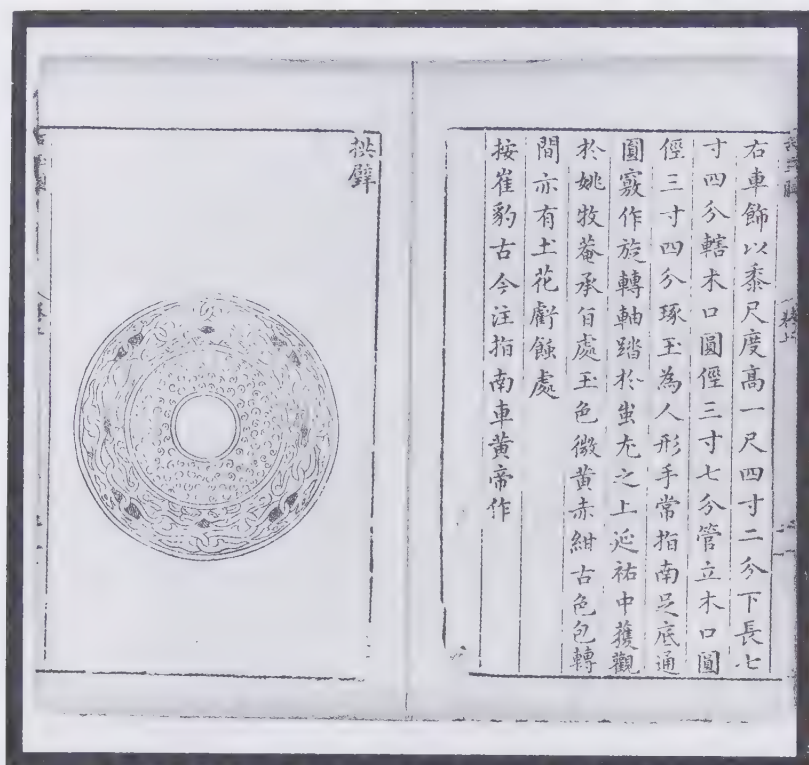 右車飾以黍尺度高一尺四寸二分下長七
寸四分轄木口圓徑三寸七分管立木口圓
徑三寸四分琢玉為人形手常指南足底通
圓竅作旋轉軸踏於蚩尤之上延祐中獲觀
於姚牧菴承旨處玉色微黃赤紺古色包轉
間亦有土花虧蝕處
按崔豹古今注指南車黃帝作
拱璧